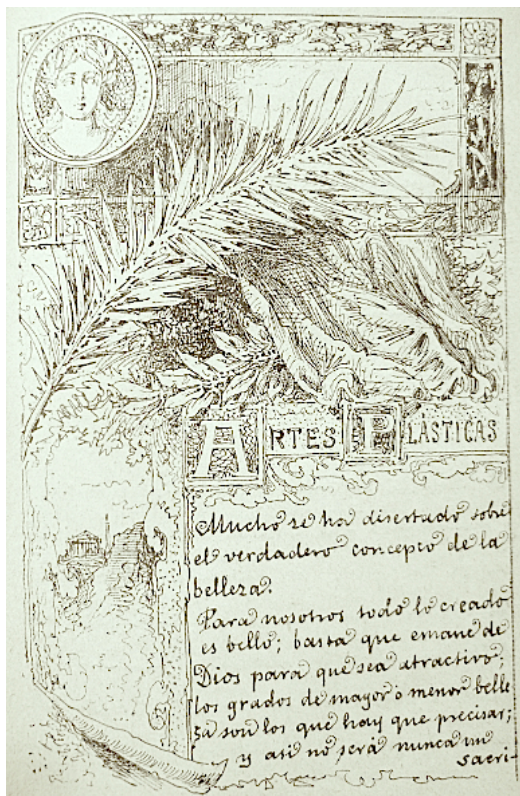 ARTES PLÁSTICAS
Mucho se ha disertado sobre
el verdadero concepto de la
belleza.
Para nosotros todo lo creado
es bello; basta que emane de
Dios para que sea atractivo;
los grados de mayor ó menor belle
za son los que hay que precisar;
y asi no será nunca un
sacri-